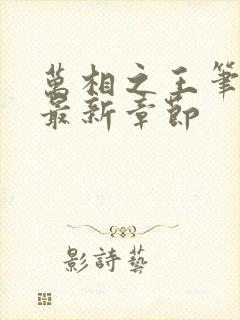 萬相之王筆
最新章節
影詩藝